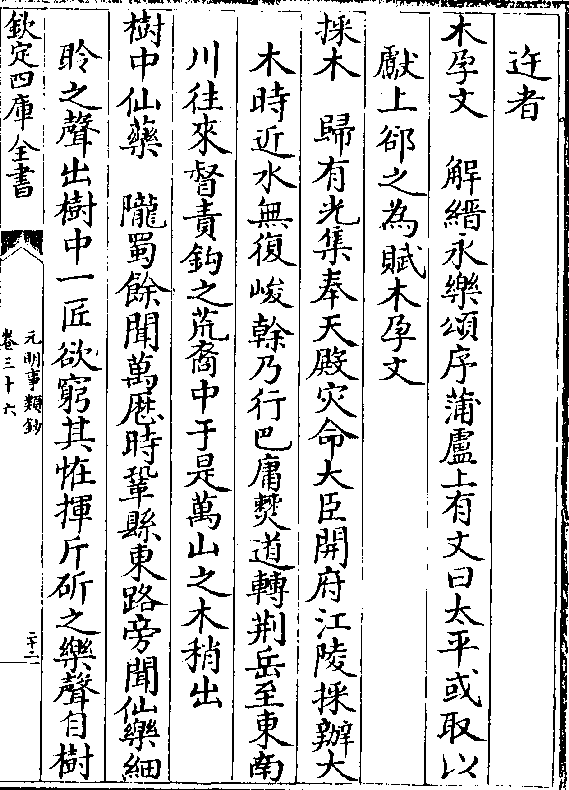 迕者
木孕文　解縉永樂頌序蒲盧上有文曰太平或取以
獻上郤之為賦木孕文
採木　歸有光集奉天殿灾命大臣開府江陵採辦大
木時近水無復峻榦乃行巴庸僰道轉荆岳至東南
川往來督責鈎之荒裔中于是萬山之木稍出
樹中仙藥　隴蜀餘聞萬厯時鞏縣東路旁聞仙樂細
聆之聲出樹中一匠欲窮其恠揮斤斫之樂聲自樹
欽定四庫全書
元明事類鈔
卷三十六
二十二